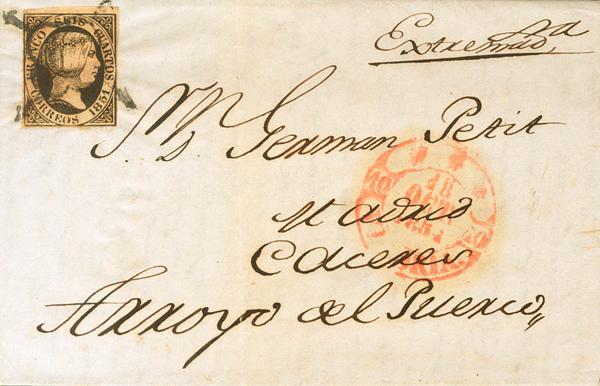 FRANCO SEIS CUARTOS
CORREOS 1851
Extremadra
Sr. Dn German Petit
Madrid
Caceres
Arroyo del Puerco
18
OCT